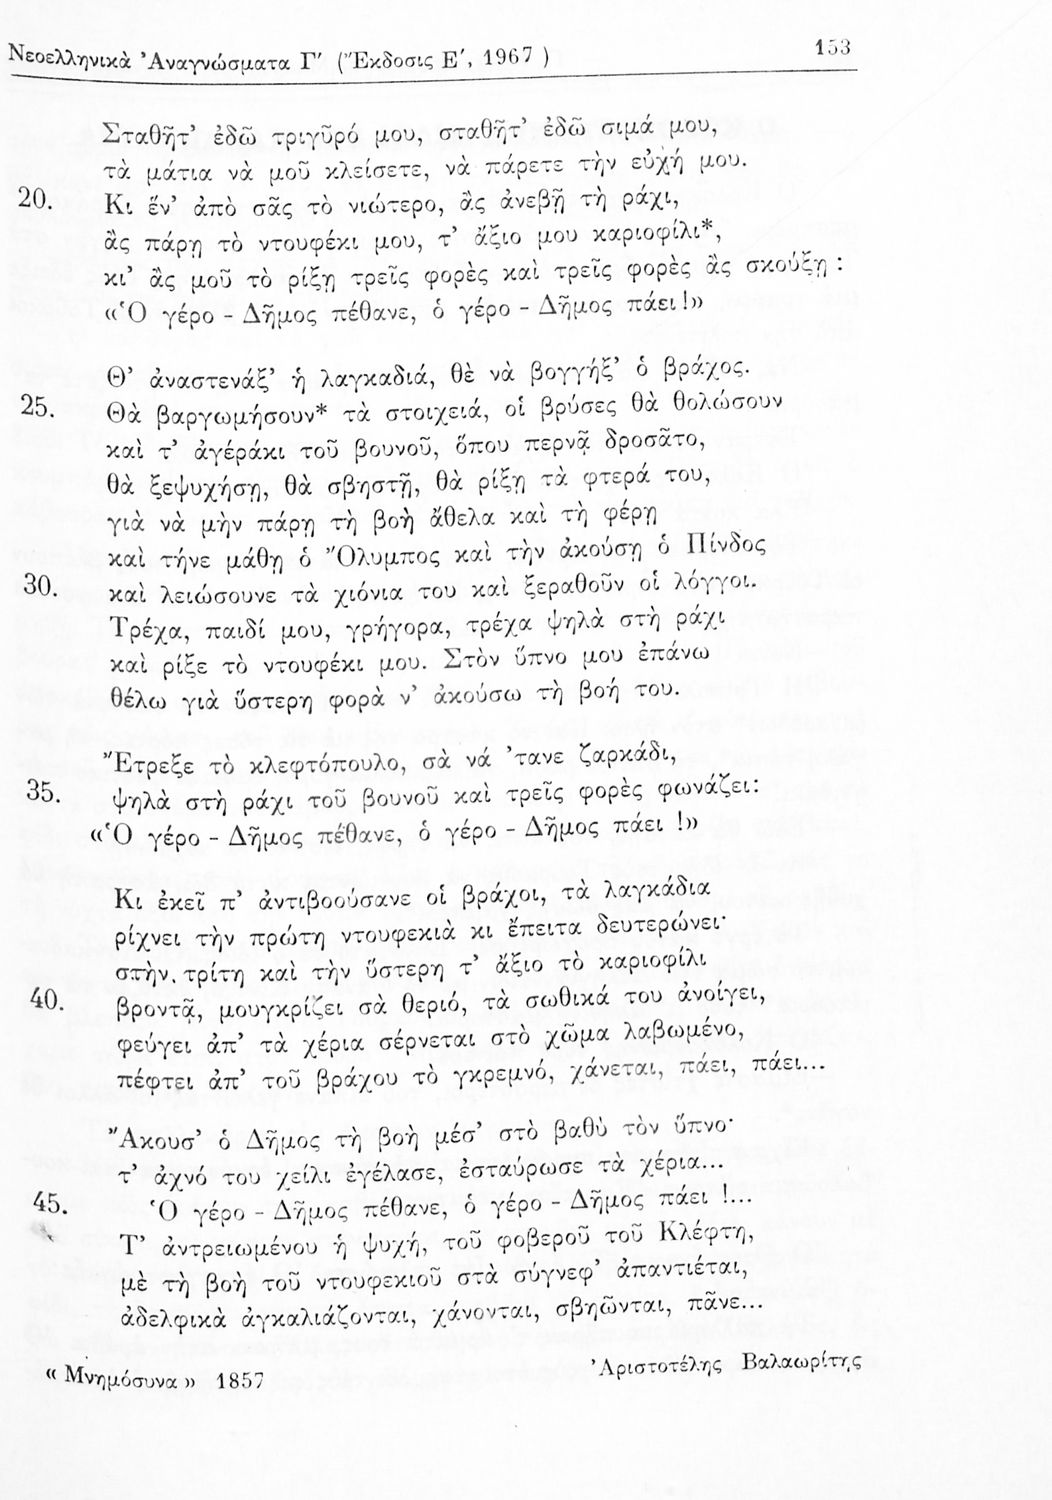 Νεοελληνικὰ Ἀναγνώσματα Γ΄ (Ἔκδοσις Ε΄, 1967 ) 153
Σταθῆτ’ ἐδῶ τριγῦρό μου, σταθῆτ’ ἐδῶ σιμά μου,
τὰ μάτια νὰ μοῦ κλείσετε, νὰ πάρετε τὴν εὐχή μου.
20. Κι ἕν’ ἀπὸ σᾶς τὸ νιώτερο, ἂς ἀνεβῇ τὴ ράχι,
ἂς πάρῃ τὸ ντουφέκι μου, τ’ ἄξιο μου καριοφίλι*,
κι’ ἂς μοῦ τὸ ρίξῃ τρεῖς φορὲς καὶ τρεῖς φορὲς ἂς σκούξῃ :
«Ὁ γέρο - Δῆμος πέθανε, ὁ γέρο - Δῆμος πάει!»
Θ’ ἀναστενάξ’ ἡ λαγκαδιά, θὲ νὰ βογγήξ’ ὁ βράχος.
25. Θὰ βαργωμήσουν* τὰ στοιχειά, οἱ βρύσες θὰ θολώσουν
καὶ τ’ ἀγέράκι τοῦ βουνοῦ, ὅπου περνᾷ δροσᾶτο,
θὰ ξεψυχήσῃ, θὰ σβηστῇ, θὰ ρίξῃ τὰ φτερά του,
γιὰ νὰ μὴν πάρῃ τὴ βοὴ ἄθελα καὶ τὴ φέρῃ
καὶ τήνε μάθῃ ὁ Ὄλυμπος καὶ τὴν ἀκούσῃ ὁ Πίνδος
30. καὶ λειώσουνε τὰ χιόνια του καὶ ξεραθοῦν οἱ λόγγοι.
Τρέχα, παιδί μου, γρήγορα, τρέχα ψηλὰ στὴ ράχι
καὶ ρίξε τὸ ντουφέκι μου. Στὸν ὕπνο μου ἐπάνω
θέλω γιὰ ὕστερη φορὰ ν’ ἀκούσω τὴ βοή του.
Ἔτρεξε τὸ κλεφτόπουλο, σὰ νά ’τανε ζαρκάδι,
35. ψηλὰ στὴ ράχι τοῦ βουνοῦ καὶ τρεῖς φορὲς φωνάζει:
«Ὁ γέρο - Δῆμος πέθανε, ὁ γέρο - Δῆμος πάει !»
Κι ἐκεῖ π’ ἀντιβοούσανε οἱ βράχοι, τὰ λαγκάδια
ρίχνει τὴν πρώτη ντουφεκιὰ κι ἔπειτα δευτερώνει·
στὴν τρίτη καὶ τὴν ὕστερη τ’ ἄξιο τὸ καριοφίλι
40. βροντᾷ, μουγκρίζει σὰ θεριό, τὰ σωθικά του ἀνοίγει,
φεύγει ἀπ’ τὰ χέρια σέρνεται στὸ χῶμα λαβωμένο,
πέφτει ἀπ’ τοῦ βράχου τὸ γκρεμνό, χάνεται, πάει, πάει...
Ἄκουσ’ ὁ Δῆμος τὴ βοὴ μέσ’ στὸ βαθὺ τὸν ὕπνο·
τ’ ἀχνό του χείλι ἐγέλασε, ἐσταύρωσε τὰ χέρια...
45. Ὁ γέρο - Δῆμος πέθανε, ὁ γέρο - Δῆμος πάει !...
Τ’ ἀντρειωμένου ἡ ψυχή, τοῦ φοβεροῦ τοῦ Κλέφτη,
μὲ τὴ βοὴ τοῦ ντουφεκιοῦ στὰ σύγνεφ’ ἀπαντιέται,
ἀδελφικὰ ἀγκαλιάζονται, χάνονται, σβηῶνται, πᾶνε...
« Μνημόσυνα » 1857 Ἀριστοτέλης Βαλαωρίτης